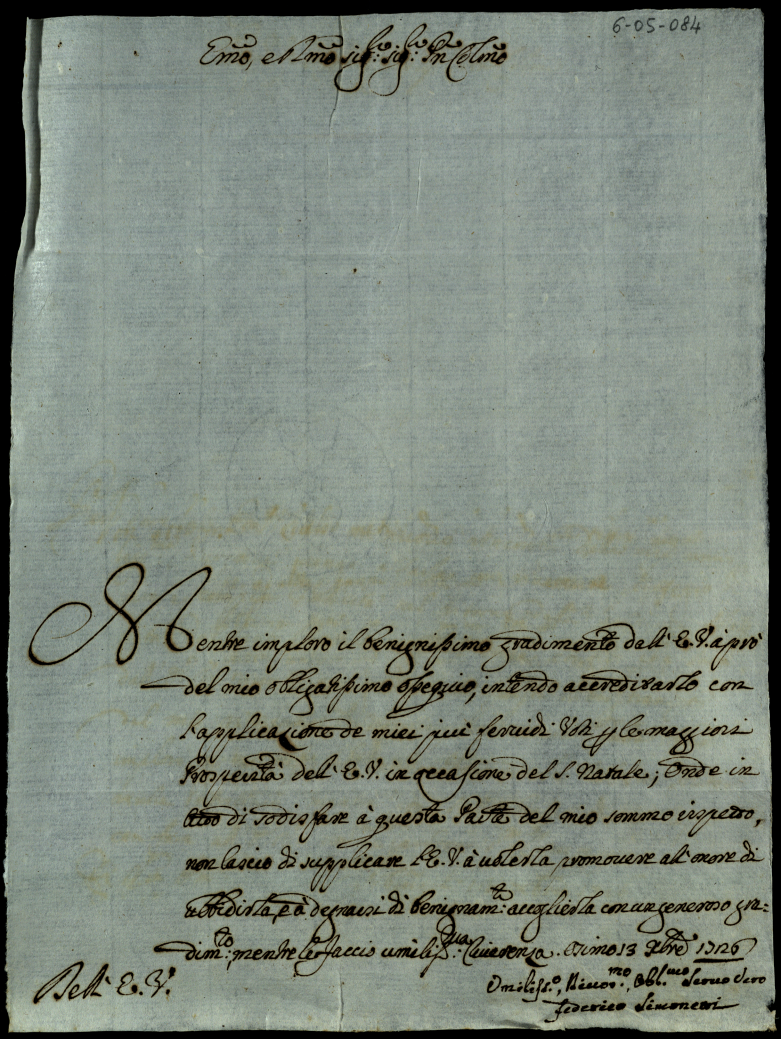 6-05-084
Emo, e Rmo Sig:re Sig:re Prn Colmo
Mentre imploro il benignissimo gradimento dell' E.V. à prò
del mio obligatissimo ossequio, intendo accreditarlo con
l'applicazione de miei piú fervidi Voti p le maggiori
Prosperità dell' E.V. in occasione del S. Natale; Onde in
atto di sodisfare à questa Parte del mio sommo rispetto,
non lascio di supplicare l'E.V. à volerla promovere all'onore di
ubbidirla, e à degnarsi di benignam:te accoglierla con un generoso gra=
dim:to, mentre le faccio umiliss:ma riverenza. Osimo 13 Xbre 1726
Dell' E.V.
Umiliss.o, Divot.mo, Obl.mo Servo Vero
Federico Simonetti